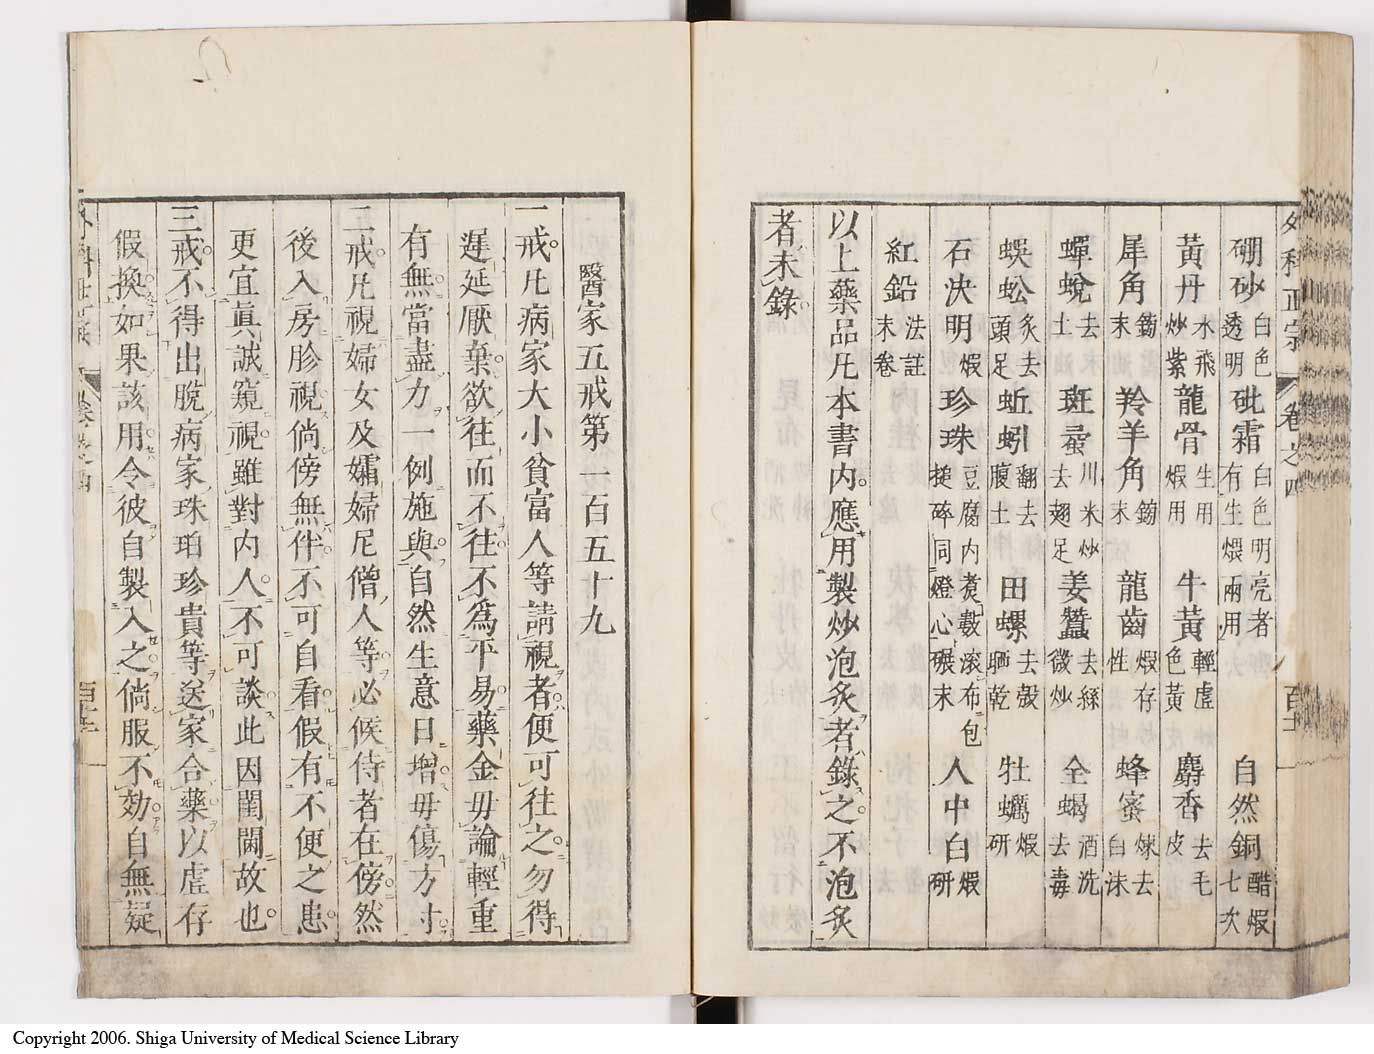 外科正宗 卷之四
硼砂 白色透明 砒霜 白色明亮者有生煨兩用 自然銅 醋煆七次
黃丹 水飛炒紫 龍骨 生用煆用 牛黃 輕虛色黃 麝香 去毛皮
犀角 鎊末 羚羊角 鎊末 龍齒 煆存性 蜂蜜 煉去白沫
蟬蛻 去土 斑蝥 川米炒去翅足 姜蠶 去絲微炒 全蝎 酒洗去毒
蜈蚣 炙去頭足 蚯蚓 翻去腹土 田螺 去殼晒乾 牡蠣 煆研
石決明 煆 珍珠 豆腐內煑數滾布包搥碎同燈心碾末 人中白 煆研
紅鉛 法註末卷
以上藥品凡本書內應用製炒泡炙者錄之不泡炙
者未錄
醫家五戒第一百五十九
一戒凡病家大小貧富人等請視者便可往之勿得
遲延厭棄欲往而不往不為平易藥金毋論輕重
有無當盡力一例施與自然生意日增毋傷方寸
二戒凡視婦女及孀婦尼僧人等必候侍者在傍然
後入房胗視倘傍無伴不可自看假有不便之患
更宜眞誠窺視雖對內人不可談此因閨閫故也
三戒不得出脫病家珠珀珍貴等送家合藥以虛存
假換如果該用令彼自製入之倘服不効自無疑
Copyright 2006. Shiga University of Medical Science Library